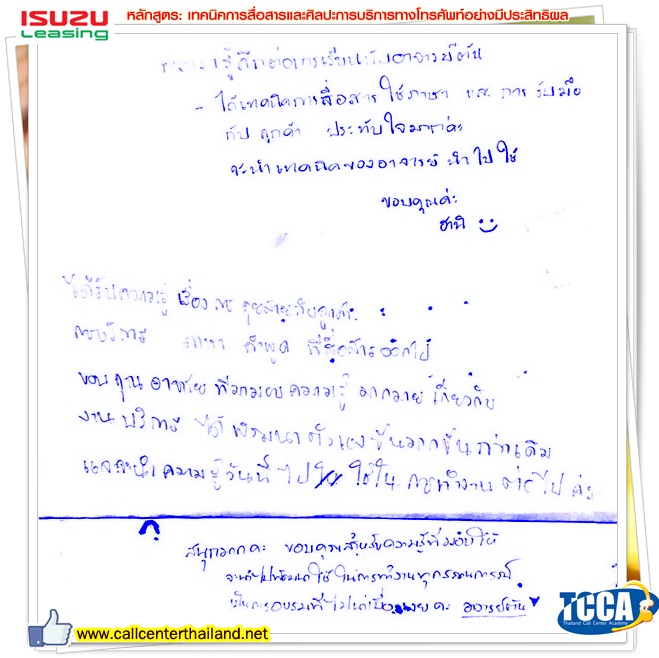 ISUZU
Leasing
หลักสูตร: เทคนิคการสื่อสารและศิลปะการบริการทางโทรศัพท์อย่างมีประสิทธิผล
รู้สึกต่อการเรียนกับอาจารย์ตัน
- ได้เทคนิคการสื่อสาร ใช้ภาษา และ การ รับมือ
กับ ลูกค้า ประทับใจมากค่ะ
จะนำเทคนิคของอาจารย์ นำไปใช้
ขอบคุณค่ะ
ฮานิ
ได้รับความรู้ เรื่อง การ คุยสายกับลูกค้า
การบริการ ภาษา คำพูด ที่สื่อสารออกไป
ขอบคุณ อาจารย์ ที่มามอบความรู้ มากมาย เกี่ยวกับ
งานบริการ ได้ พัฒนา ตัวเองขึ้นมากขึ้นกว่าเดิม
และจะนำความรู้วันนี้ ไป ใช้ใน การทำงาน ต่อไป ค่ะ
สนุกมากค่ะ ขอบคุณสำหรับความรู้ที่มอบให้
จะนำไปพัฒนาใช้ในการทำงานทุกสถานการณ์
เป็นการอบรมที่ไม่น่าเบื่อเลย คะ อาจารย์ตัน
www.callcenterthailand.net
TCCA
Thailand Call Center Academy